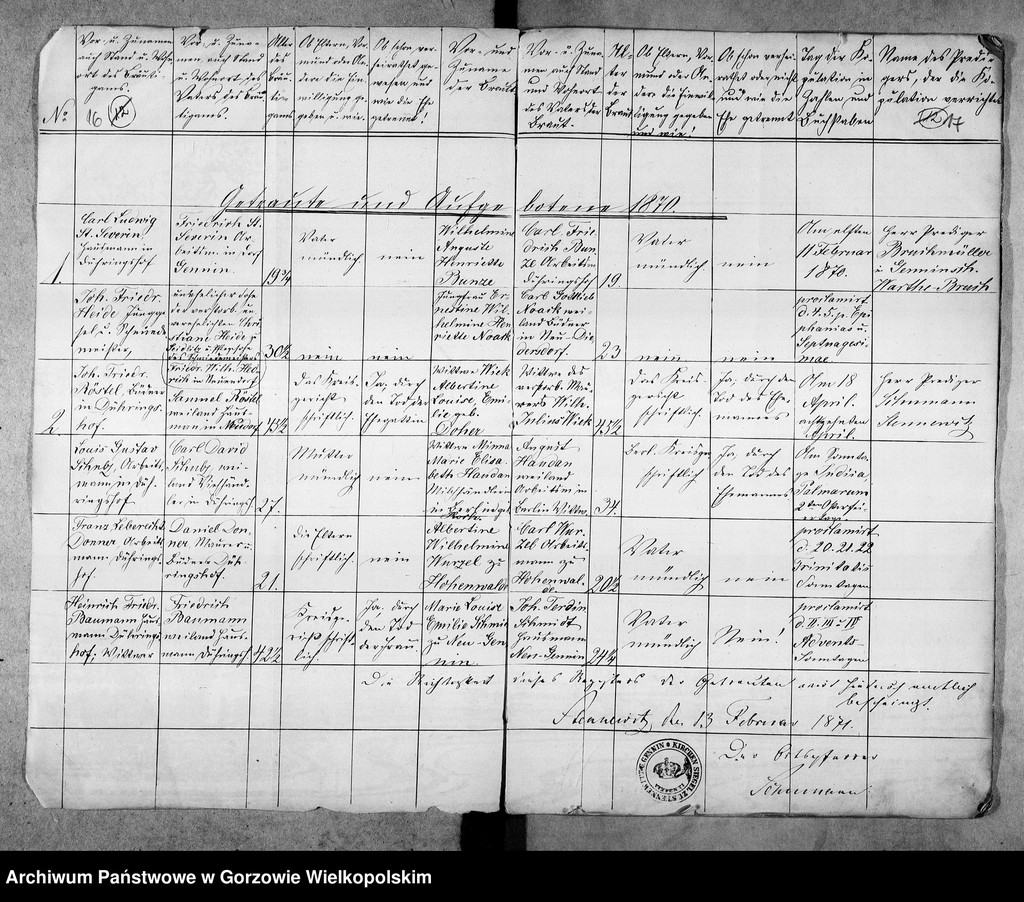 No
Vor- u. Zunamen
auch Stand u. Wohn
ort des Bräuti
gams.
16
Vor- u. Zuna-
men auch Stand
u. Wohnort des
Vaters des Bräu
tigams.
Alter
des
Bräu-
ti-
gams
Ob Eltern, Vor
mund oder An
dere die Ein
willigung ge-
geben u. wie.
Ob schon ver-
heirathet ge-
wesen und
wie die Ehe
getrennt!
Vor- und
Zuname
der Braut
Vor- u. Zuna-
men auch Stand
und Wohnort
des Vaters der
Braut.
Al-
ter
der
Braut
Ob Eltern, Vor
mund oder An-
dere die Einwil-
ligung gegeben
und wie!
Ob schon verhei-
rathet oder nicht
und wie die
Ehe getrennt
Tag der Ko-
pulation in
Zahlen und
Buchstaben
Name des Predi-
gers, der die Ko-
pulation verrichtet
17
Getraute und Aufgebotene 1870.
1.
Carl Ludwig
St. Severin,
Hautmann in
Dühringshof
Friedrich St.
Severin Ar-
beitsm. in Dorf
Gennin.
19¾
Vater
mündlich
nein
Wilhelmine
Auguste
Henriette
Bunze
Carl Frie
drich Bun
ze Arbeitsm
Dühringshof
19.
Vater
mündlich
nein
Am elften
11 Februar
1870.
Herr Prediger
Bruchmüller
i. Genninsch.
Warthe-Bruch
Joh. Friedr.
Heide Jungge
sel u. Schmiede
meister,
unehelicher Sohn
der verstorb. un
verehelichten Chri
stiane Heide
Friedr. Wilh.
30½
nein
nein
Jungfrau Er-
nestine Wil-
helmine Hen
riette Noack
Carl Gottlieb
Noack wei-
land Büdner
in Neu-Die
dersdorf.
23
nein
nein
proclamirt
d. 4. 5. p. Epi
phanias u.
Septuagesi-
mae
2
Joh. Friedr.
Röstel, Bauer
in Dührings-
hof.
Samuel Röstel
weiland
43½
Das Kreis-
gericht
schriftlich.
Ja, durch
den Tod der
Ehegattin
Wittwe Wiek
Albertine
Louise, Emi-
lie geb.
Doher
Wittwe des
verstorb. Mau-
rers Wilh.
Julius Wiek
43½
Das Kreis-
gericht
schriftlich.
Ja, durch den
Tod des Ehe-
mannes
Am 18
April.
achtzehnten
April.
Herr Prediger
Schumann
Stennewitz
Louis Gustav
Schulz, Arbeits-
mann in Düh-
ringshof
Carl David
Schulz, wei-
land Viehhänd-
ler in Dühringsh
27.
Mutter
mündlich
nein
Wittwe Minna
Marie Elisa
beth Handan
Milchhändlerin
in Berlin
August
Handan
weiland
Arbeitsm in
Berlin
34.
Berl. Kreisger
schriftlich
Ja, durch
den Tod des
Ehemannes
Am Sonnta-
ge Judica,
Palmarum
Franz Leberecht
Donner, Arbeits-
mann, Dührings-
hof.
Daniel Don-
ner, Maurer u.
Büdner Düh-
ringshof.
21.
Die Eltern
schriftlich.
nein
Albertine
Wilhelmine
Wurzel zu
Hohenwalde
Carl Wur-
zel Arbeits-
mann zu
Hohenwal-
de
20½
Vater
mündlich
nein
proclamirt
d. 20. 21. 22
Trinitatis
Sonntagen
Heinrich Friedr.
Baumann Haus
mann Dührings-
hof, Wittwer
Friedrich
Baumann
weiland Haus-
mann Dühringsh
42½
Kreisge-
richt schrift-
lich.
Ja, durch
den Tod
der Frau.
Marie Louise
Emilie Schmidt
zu Neu-Gen-
nin.
Joh. Ferdin
Schmidt
Hausmann
Neu-Gennin
24¾
Vater
mündlich
Nein!
proclamirt
d. II. III. IV
Advents-
Sonntagen
Die Richtigkeit dieses Registers der Getrauten wird hierdurch amtlich
bescheinigt.
Stennewitz, den 13 Februar 1871.
Der Ortspfarrer
Schumann
Archiwum Państwowe w Gorzowie Wielkopolskim